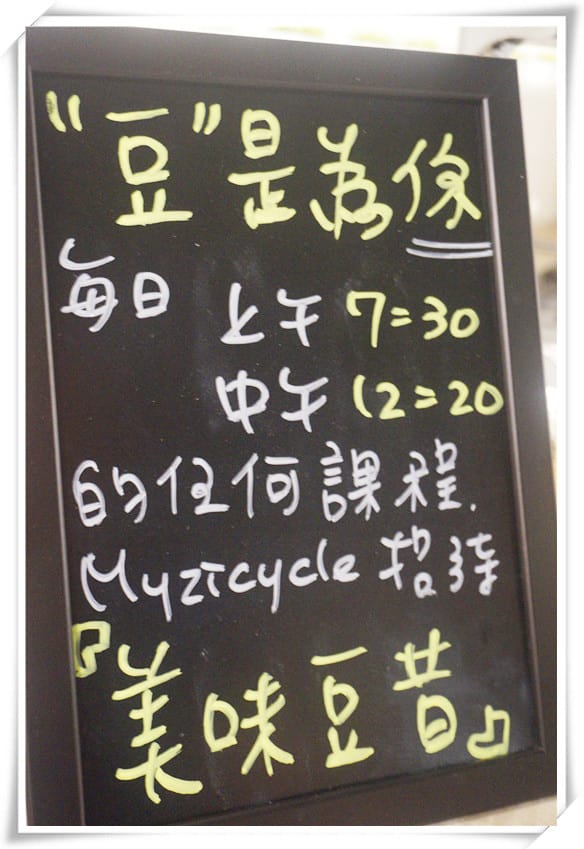 "豆"是為你
每日 上午 7:30
中午 12:20
的任何課程.
Myzicycle 招待
『美味豆昔』